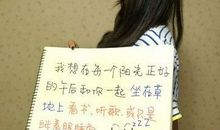 我想在每一个阳光正好
的午后和你一起 坐在草
地上 看书、听歌、或只是
眯着眼睡觉
zzz